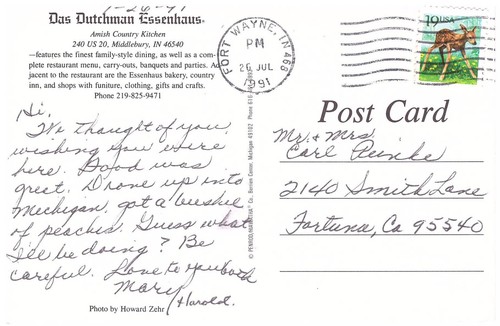 7-26-91
Das Dutchman Essenhaus.
Amish Country Kitchen
240 US 20, Middlebury, IN 46540
–features the finest family-style dining, as well as a com-
plete restaurant menu, carry-outs, banquets and parties. Ad-
jacent to the restaurant are the Essenhaus bakery, country
inn, and shops with funiture, clothing, gifts and crafts.
Phone 219-825-9471
Hi,
We thought of you,
wishing you were
here. Food was
great. Drove up into
Michigan, got a bushel
of peaches. Guess what
I'll be doing? Be
careful. Love to you both
Mary & Harold.
Photo by Howard Zehr
FORT WAYNE, IN 468
PM
26 JUL
1991
19 USA
Post Card
Mr. & Mrs.
Carl Reinke
2140 Smith Lane
Fortuna, Ca 95540